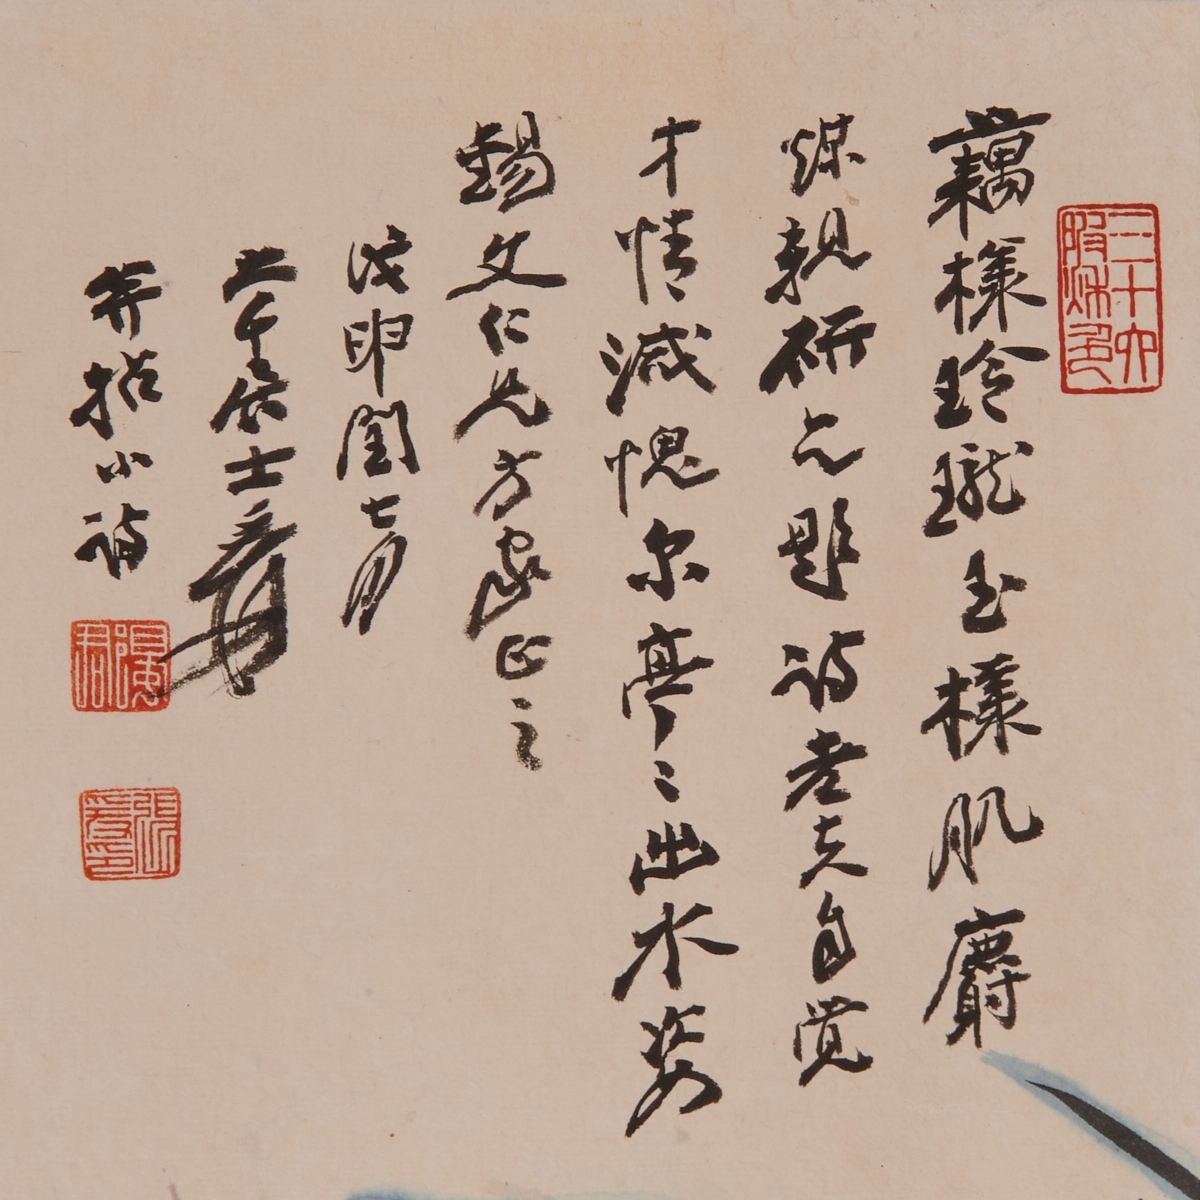 三十六陂秋色
藕樣玲瓏玉樣肌麝
煤親研与題詩老夫自覺
才情減愧尔亭〻出水姿
錫文仁兄方家正之
戊申閏七月
大千居士爰
并拈小詩